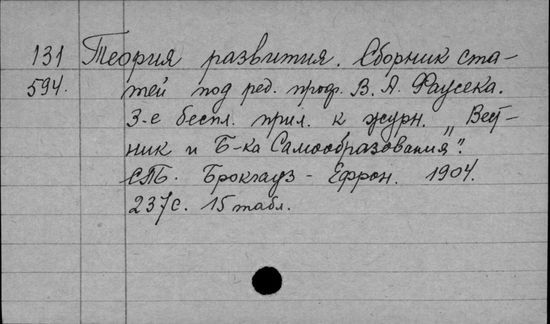 131 Теория развития. Сборник ста-
594. тей под ред. проф. В. А. Фаусека.
3-е беспл. прил. к журн. „Вест-
ник и Б-ка Самообразования".
СПБ. Брокгауз - Ефрон. 1904.
237с. 15 табл.